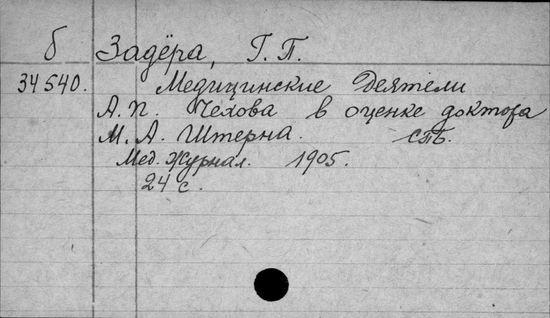 б Задёра, Г. П.
34540. Медицинские Деятели
А. П. Чехова в оценке доктора
М. А. Штерна. СПб.
Мед. журнал. 1905.
24 с.